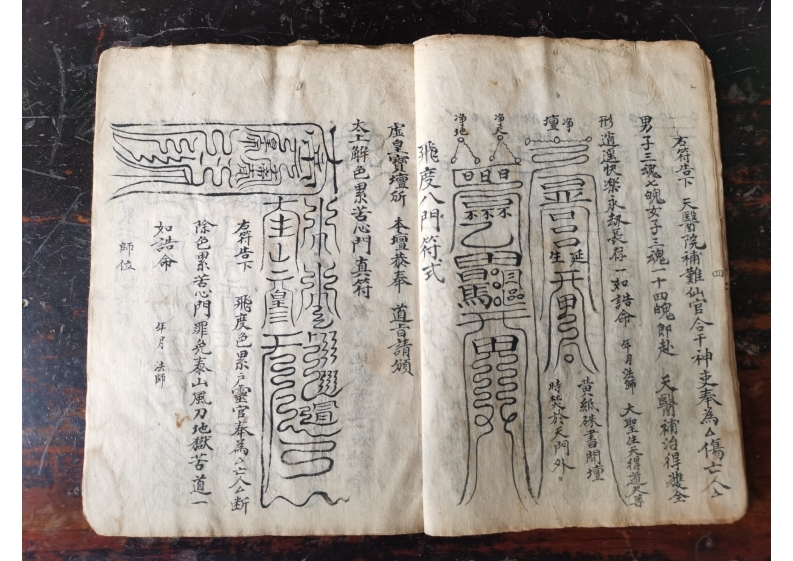 右符告下 天醫院補難仙官合干神吏奉為厶傷亡人厶
男子三魂七魄女子三魂一十四魄即赴 天醫補治得獲全
形逍遙快樂永劫長存一如誥命 年月 法師 大聖生天得道天尊
淨壇
延生
黃紙硃書開壇
時焚於天門外
淨天
淨地
飛度八門符式
虛皇寶壇所 本壇恭奉 道旨請頒
太上解色累苦心門真符
右符告下 飛度色累戶靈官奉為厶亡人厶斷
除色累苦心門罪免泰山風刀地獄苦道一
如誥命 年月 法師
師位